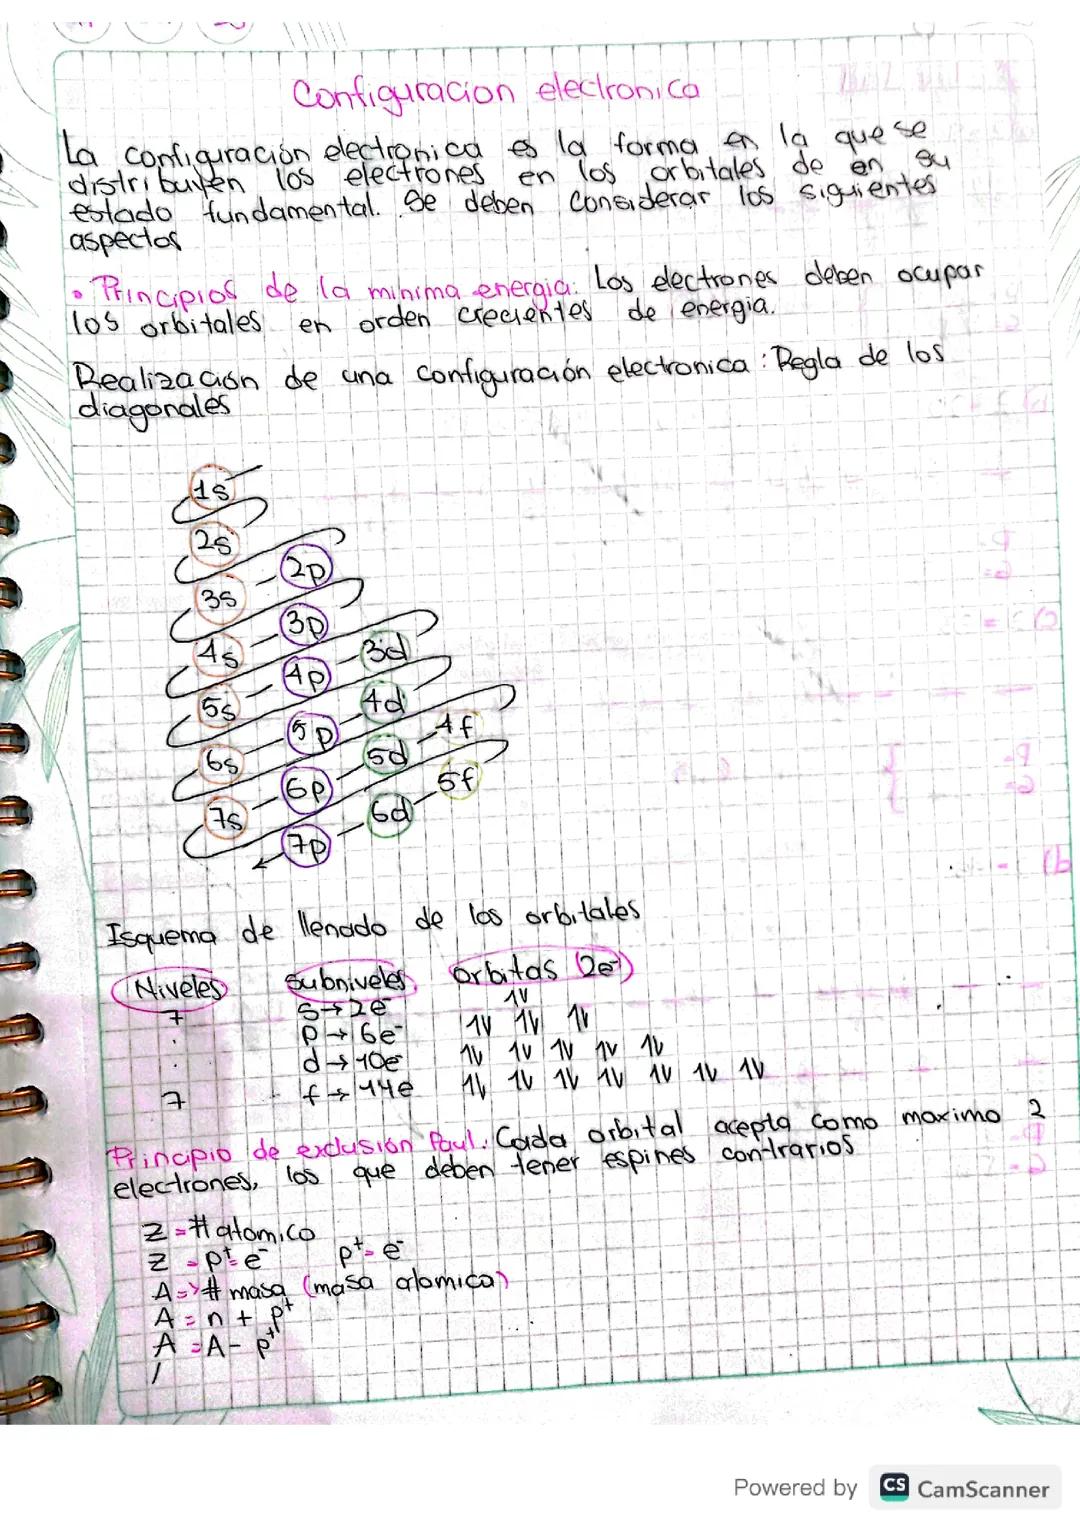 Configuracion electronica
La configuración electronica es la forma en la que se
distribuyen los electrones en los orbitales de en su
estado fundamental. Se deben considerar los siguientes
aspectos
• Principios de la minima energia. Los electrones deben ocupar
los orbitales en orden crecientes de energia.
Realización de una configuración electronica: Regla de los
diagonales
1s
2s
2p
3s
3p
4s 3d
4p
5s 4d
5p 4f
6s 5d
6p 5f
7s 6d
7p
Isquema de llenado de los orbitales
Niveles subniveles orbitas (2e⁻)
7 s→2e⁻ 1V
. p→6e⁻ 1V 1V 1V
. d→10e⁻ 1V 1V 1V 1V 1V
7 f→14e 1V 1V 1V 1V 1V 1V 1V
Principio de exclusión Paul. Cada orbital acepta como maximo 2
electrones, los que deben tener espines contrarios
Z = # atomico
Z = p⁺= e⁻ p⁺= e⁻
A => # masa (masa atomica)
A = n + p⁺
A = A - p⁺
/
Powered by CS CamScanner